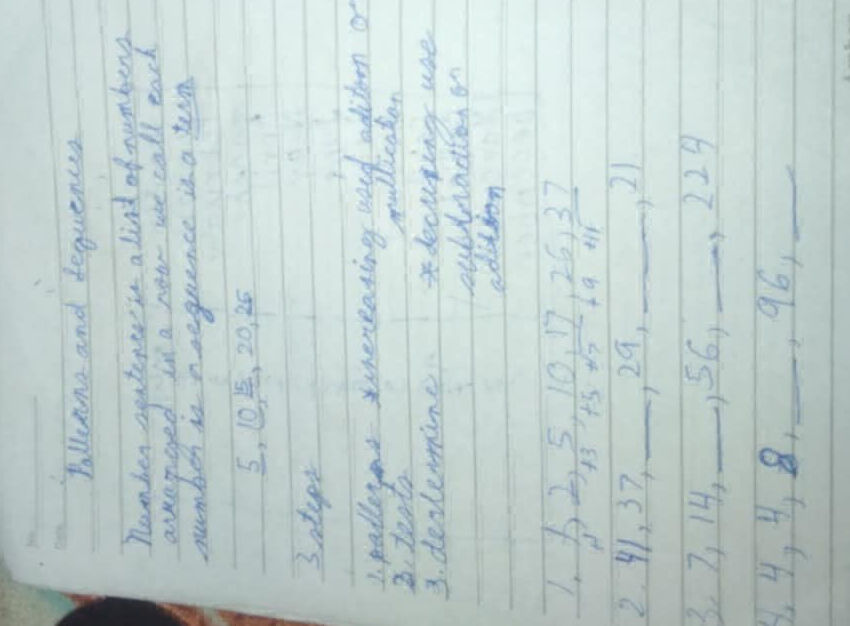 No.
Date
Patterns and Sequences
Number sentence is a list of numbers
arranged in a row we call each
number is a sequence is a term
5, 10, 15, 20, 25
3 steps
1. patterns *increasing used adition or
2. tests multication
3. deslermine *decreasing use
subtraction or
adition
1. 1, 2, 5, 10, 17, 26, 37
+1 +3 +5 +7 +9 +11
2. 41, 37, __, 29, __, __, 21
3. 7, 14, __, 56, __, 224
4. 4, 4, 8, __, 96, __